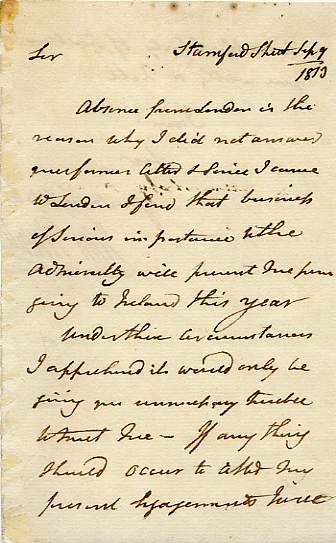 Sir Stamford Street Sep 9
1813
Absence from London is the
reason why I did not answer
your former letter & Since I came
to London I find that business
of Serious importance to the
Admiralty will prevent me from
going to Ireland this year
Under these Circumstances
I apprehend it would only be
giving you unnecessary trouble
to meet me — If any thing
should occur to alter my
present Engagements I will